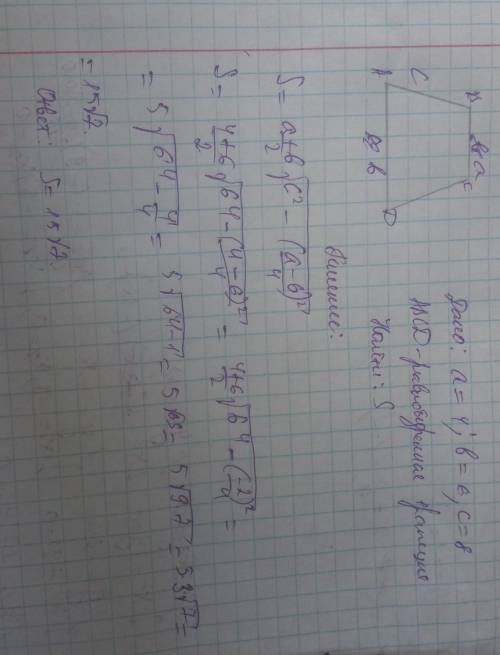 Дано: a = 4; в = 6, c = 8
ABCD - равнобедренная трапеция
Найти: S
B a C
C
A в D
Решение:
S = a+в/2 √c² - (a-в)²/4
S = 4+6/2 √64 - (4-6)²/4 = 4+6/2 √64 - (-2)²/4 =
= 5√64 - 4/4 = 5√64-1 = 5√63 = 5√9·7 = 5·3√7 =
= 15√7.
Ответ: S = 15√7.